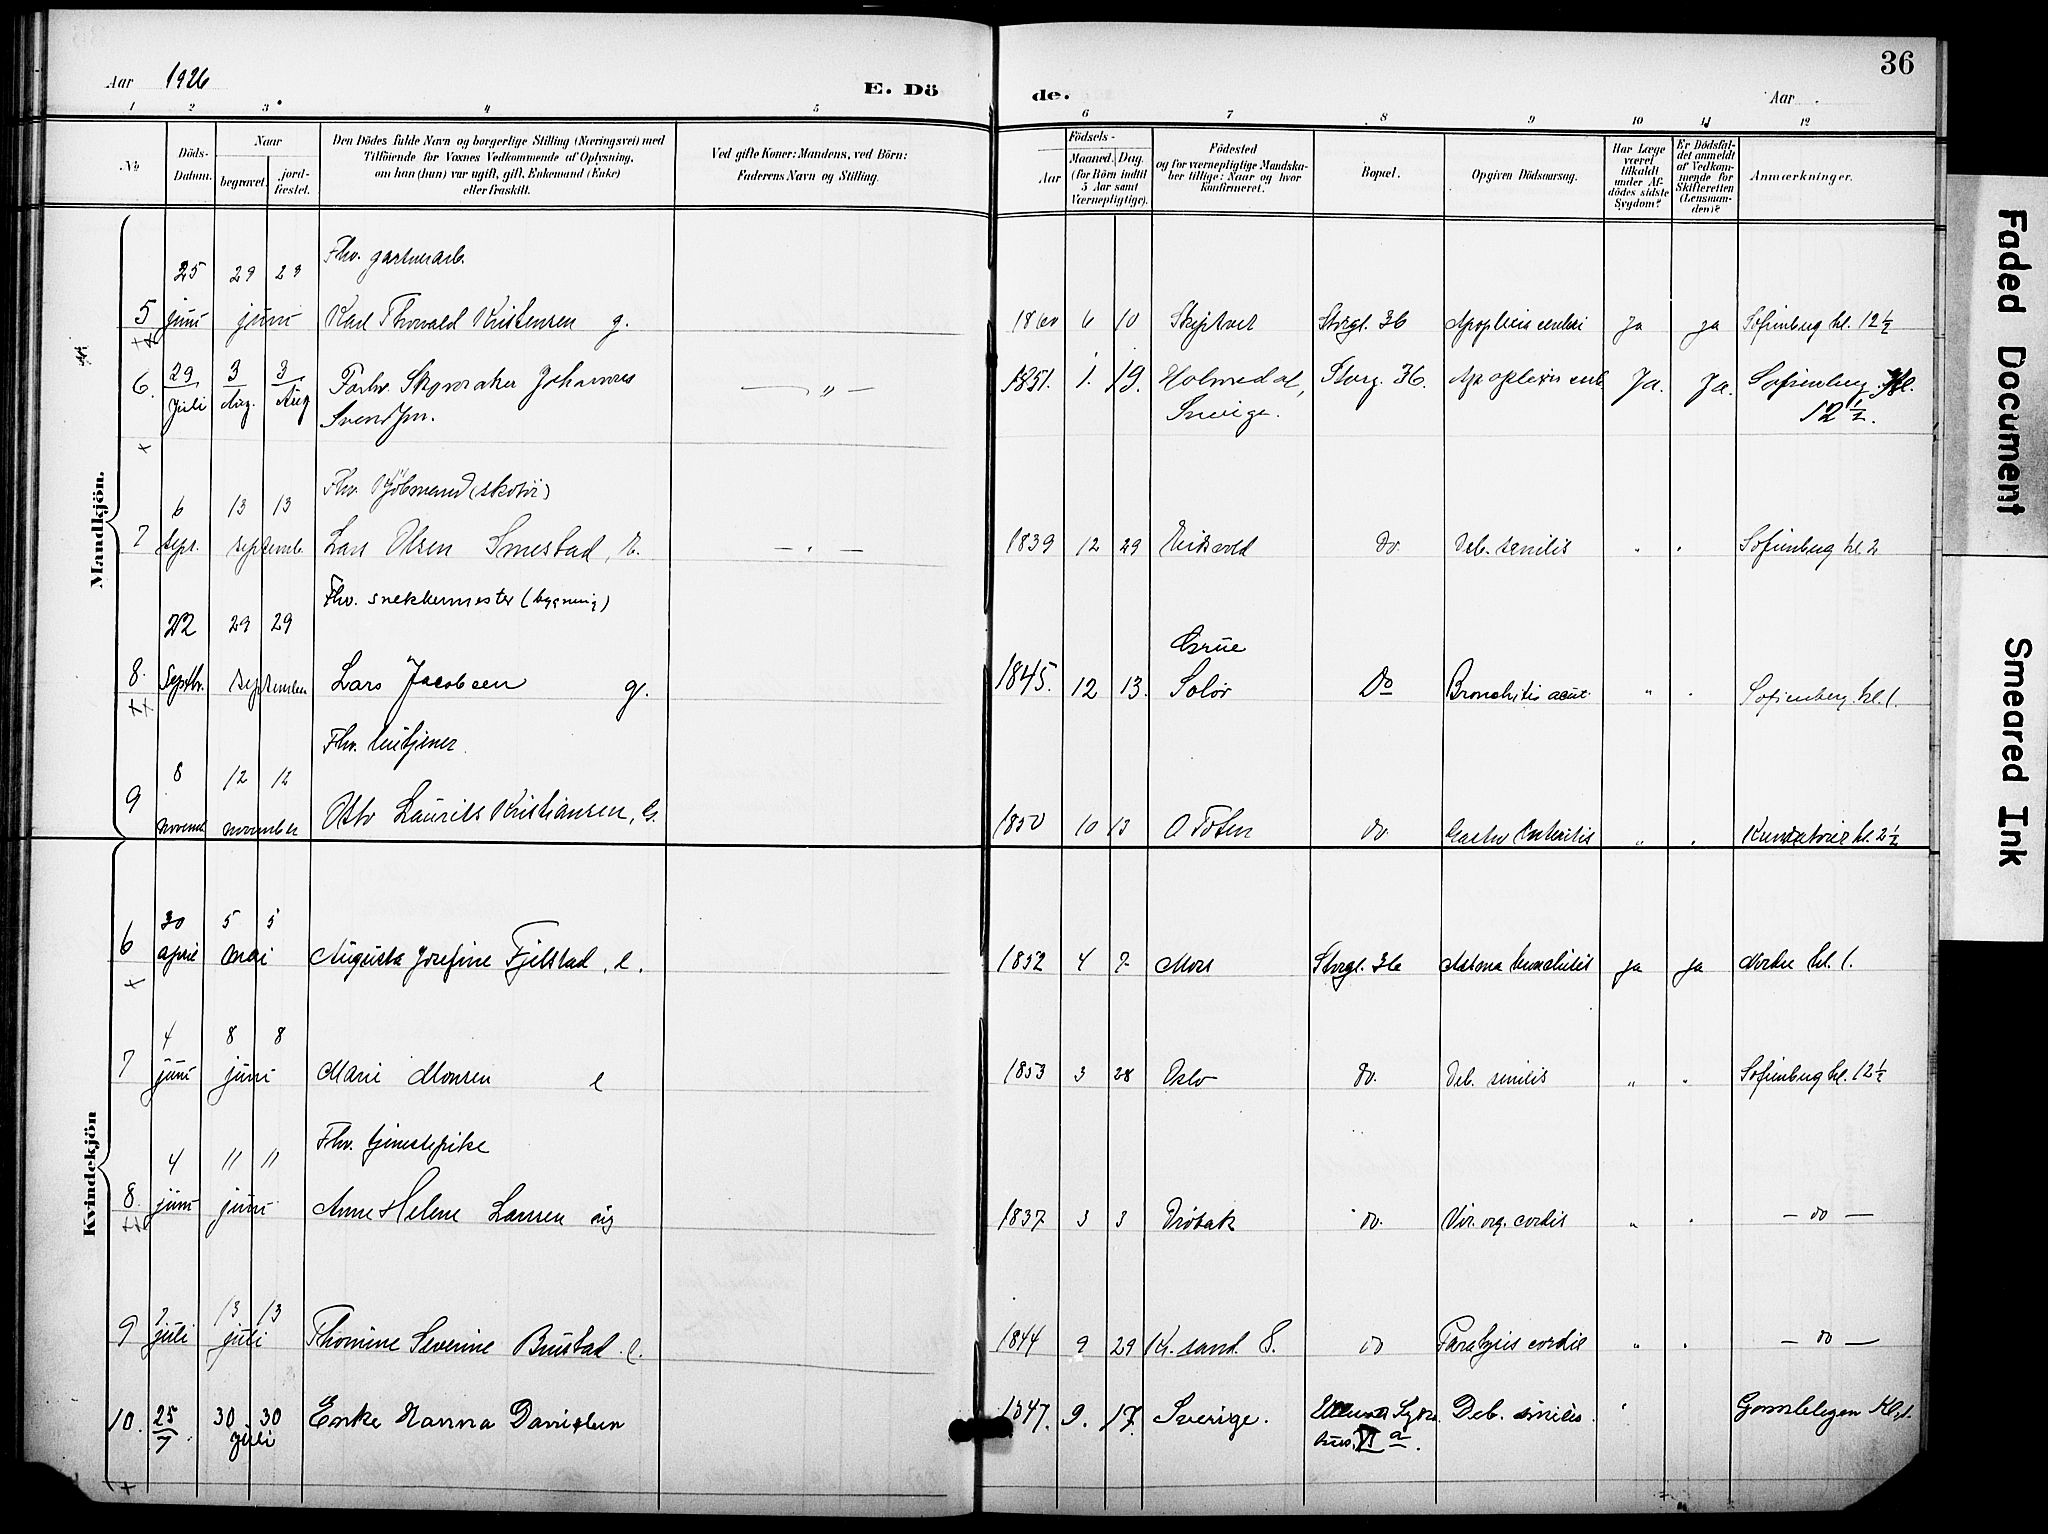 Aar 1926
E. Dö
de.
Aar
36
1 2 3 4 5 6 7 8 9 10 11 12
No
Döds-Datum.
Naar
begravet.
jord-fæstet.
Den Dödes fulde Navn og borgerlige Stilling (Næringsvei) med
Tilföiende for Voxnes Vedkommende af Oplysning,
om han (hun) var ugift, gift, Enkemand (Enke)
eller fraskilt.
Ved gifte Koner: Mandens, ved Börn:
Faderens Navn og Stilling.
Födsels-
Aar
Maaned. Dag.
(for Börn indtil
5 Aar samt
Værnepligtige).
Födested
og for værnepligtige Mandska-
ber tillige: Naar og hvor
konfirmeret.
Bopæl.
Opgiven Dödsaarsag.
Har Læge
været
tilkaldt
under Af-
dödes sidste
Sygdom?
Er Dödsfal-
det anmeldt
af Vedkom-
mende for
Skifteretten
(Lensman-
den)?
Anmærkninger.
Mandkjön.
Fhv. gartnerarb.
5 25 juni 29 29 juni Karl Thorvald Kristensen g. 1860 6 10 Skiptvet Storgt. 36 Apoplexis cerebri ja ja Sofienberg kl. 12 1/2
6. 29 Juli 3 Aug. 3 Aug Forhv. Skomaker Johannes — „ — 1851. 1. 19. Holmedal, Storg. 36. Apoplexis cereb Ja. Ja. Sofienberg Kl.
Svendsen. Sverige. 12 1/2.
Fhv. Kjöbmand (skotöi)
7 6 sept. 13 13 septemb. Lars Olsen Smestad, e. — „ — 1839 12 29 Eidsvold do. Deb. senilis „ „ Sofienberg kl. 2
Fhv. snekkermester (bygning)
8. 22 Septbr. 29 29 september Lars Jacobsen g. 1845. 12 13. Grue Solör Do Bronchitis acut. „ „ Sofienberg. kl. 1.
Fhv.
9 8 novemb 12 12 november Otto Laurits Kristiansen, G. 1850 10 13 Ö Toten do. „ „ Krematoriet kl. 2 1/2
Kvindekjön
6 30 april 5 5 mai Augusta Josefine Fjelstad, e. 1852 4 7 Moss Storgt. 36 Astma bronchitis ja ja Nordre kl. 1.
7 4 juni 8 8 juni Marie Monsen e 1853 3 28 Oslo do. Deb. senilis „ „ Sofienberg kl. 12 1/2
Fhv. tjenestepike
8. 4 juni 11 11 juni Anne Helene Larsen ug 1837 3 3 Dröbak do. Vit. org. cordis „ „ — do —
9 7 juli 13 13 juli Thomine Severine Bustad. e. 1844 9 29 Kr.sand S. do Paralysis cordis „ „ — do —
10. 25/7 30 30 juli Enke Hanna Danielsen 1847. 9. 17. Sverige. Ullevaal Syke Deb. senilis. „ Gamlebyen Kl. 1.
hus. VI a.
Faded Document
Smeared Ink